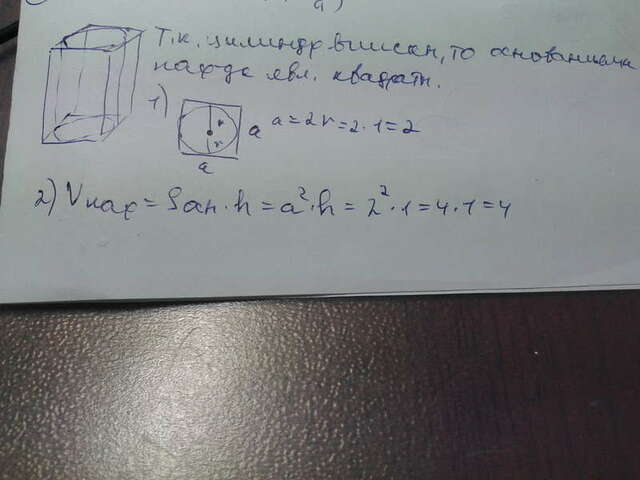 Т.к. цилиндр вписан, то основаниями
пар-да явл. квадраты.
1)
r
r
a
a
a = 2r = 2·1 = 2
2) Vпар = Sосн·h = a²·h = 2²·1 = 4·1 = 4